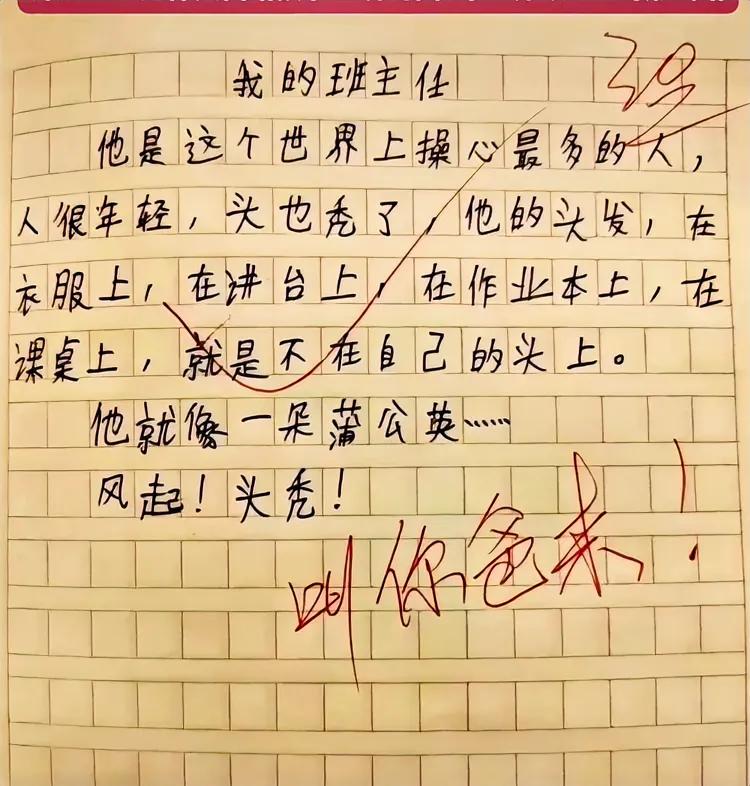 我的班主任
他是这个世界上操心最多的人，
人很年轻，头也秃了，他的头发，在
衣服上，在讲台上，在作业本上，在
课桌上，就是不在自己的头上。
他就像一朵蒲公英……
风起！头秃！
叫你爸来！